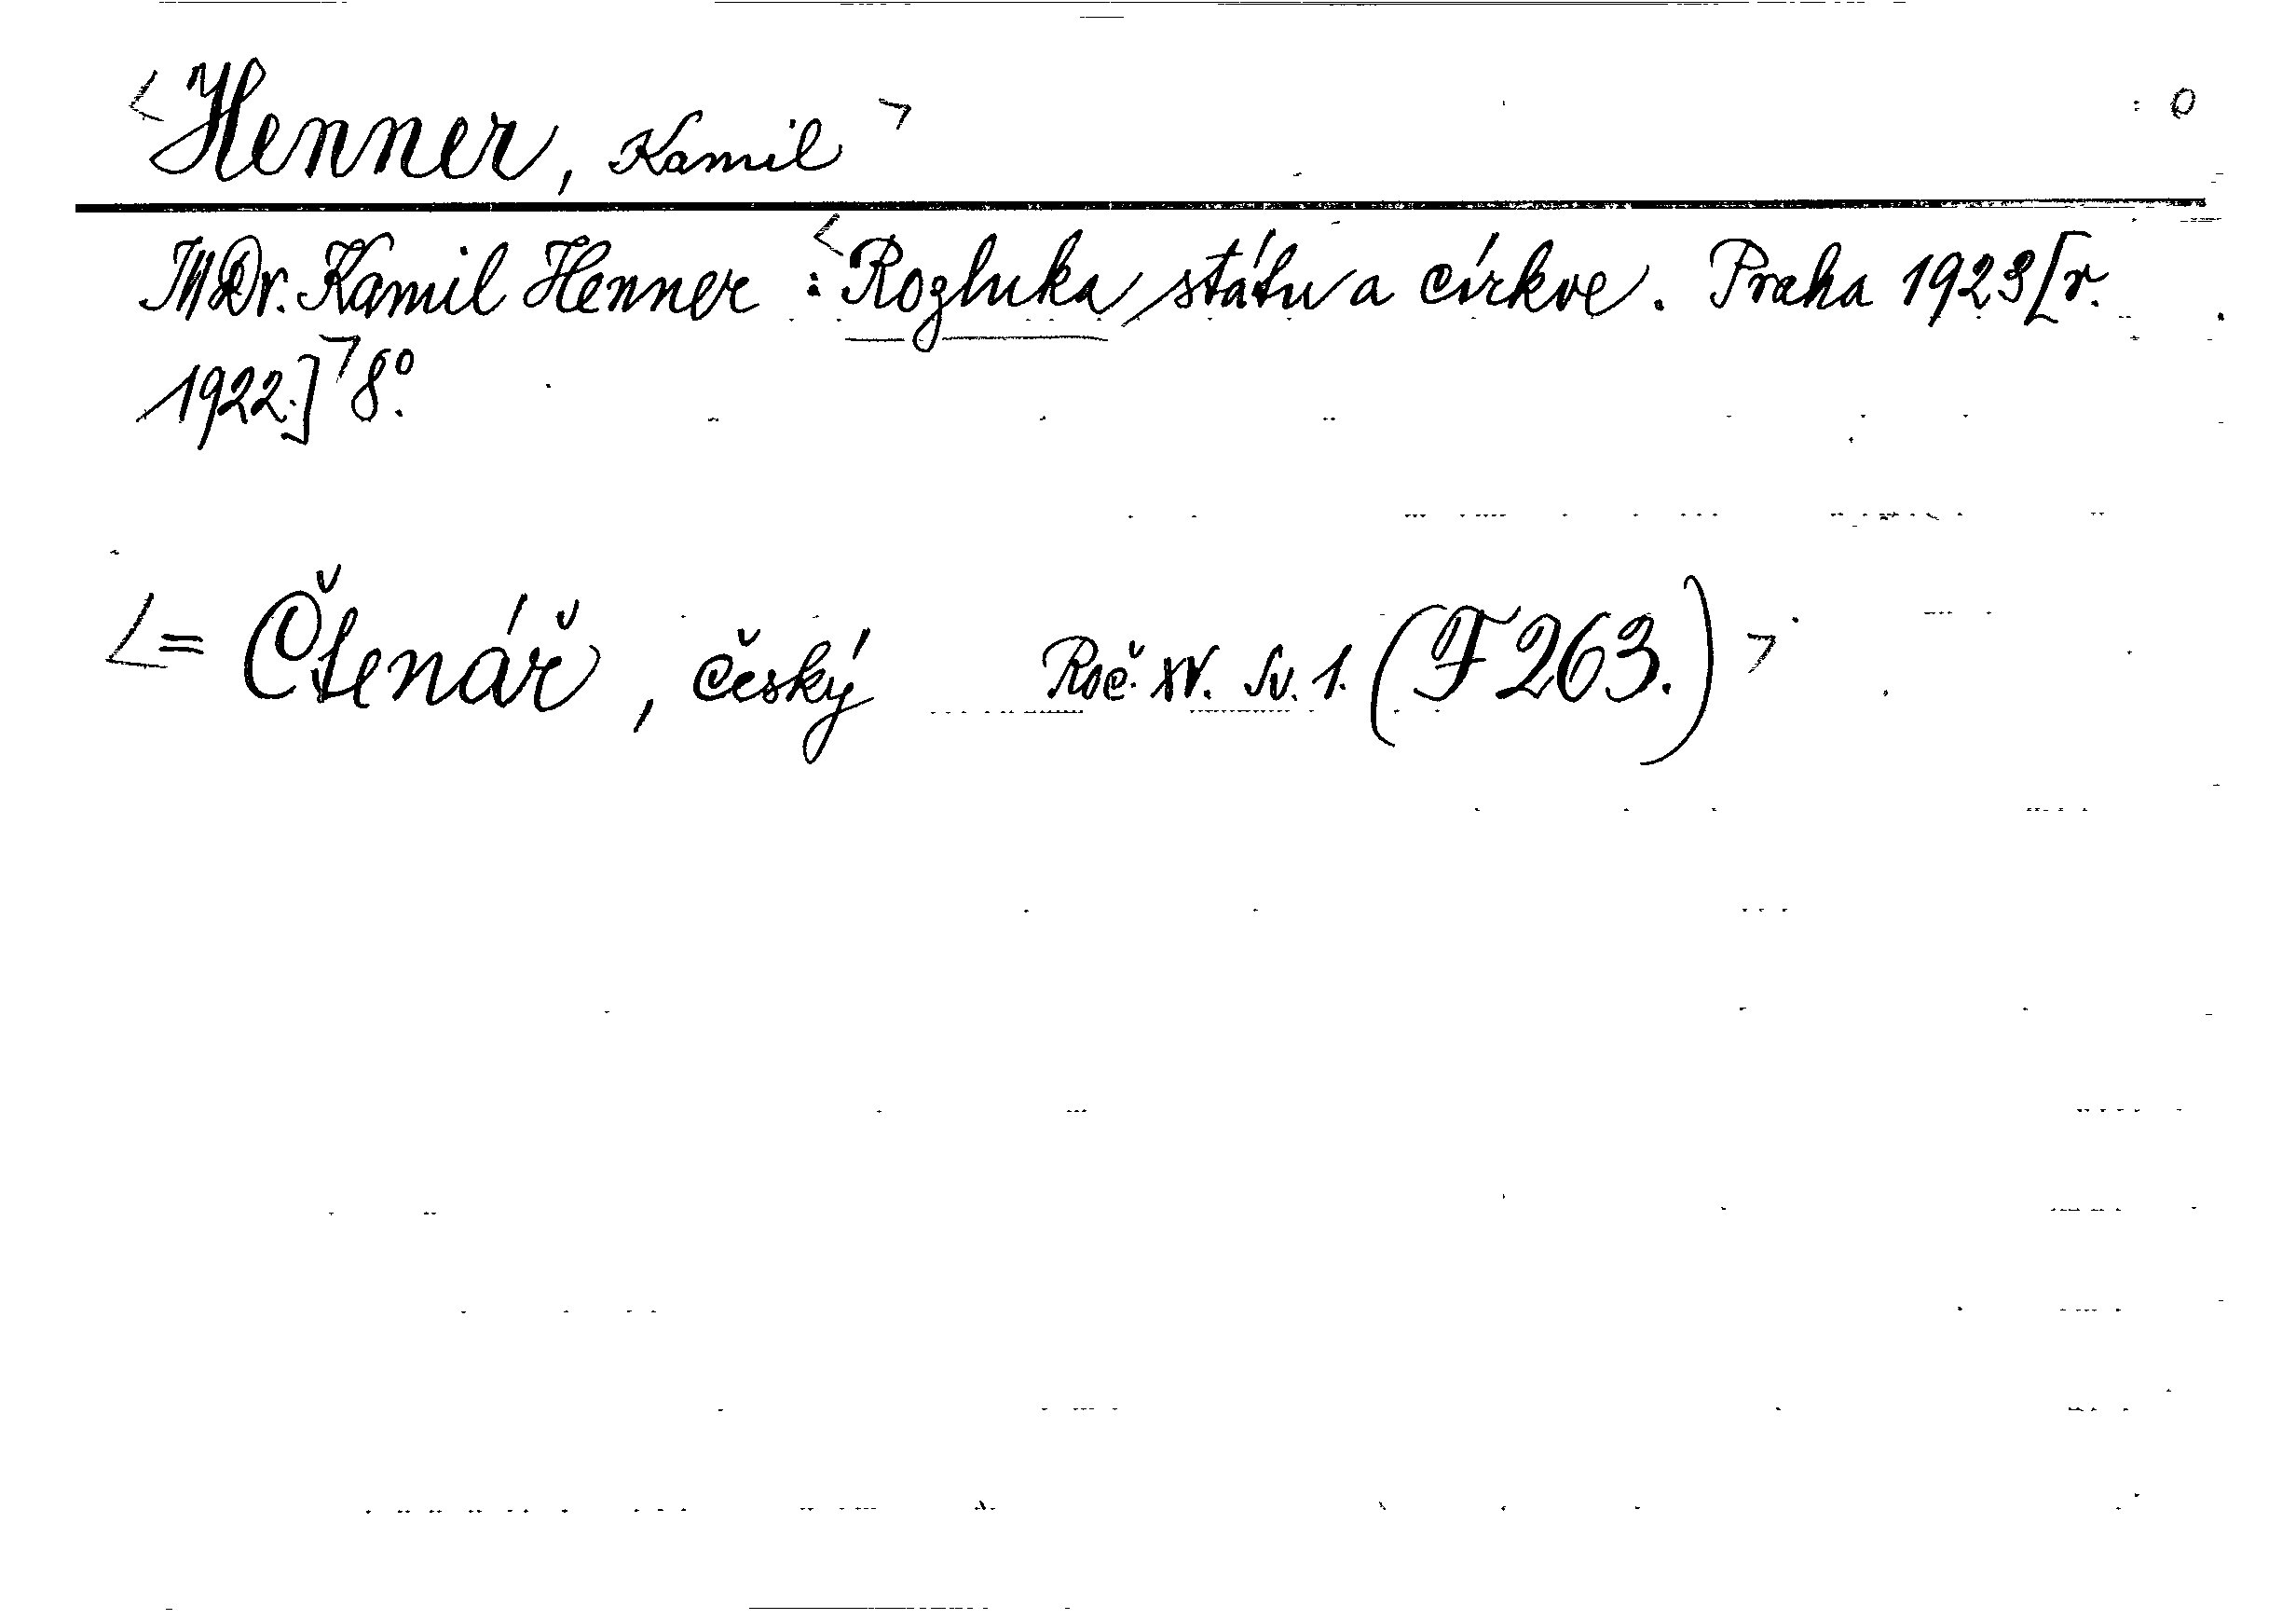 <Henner, Kamil> o
JUDr. Kamil Henner : <Rozluka státu a církve. Praha 1923 [r.
1922.]> 8°.
<= Čtenář, český Roč. XV. Sv. 1. (F 263.)>